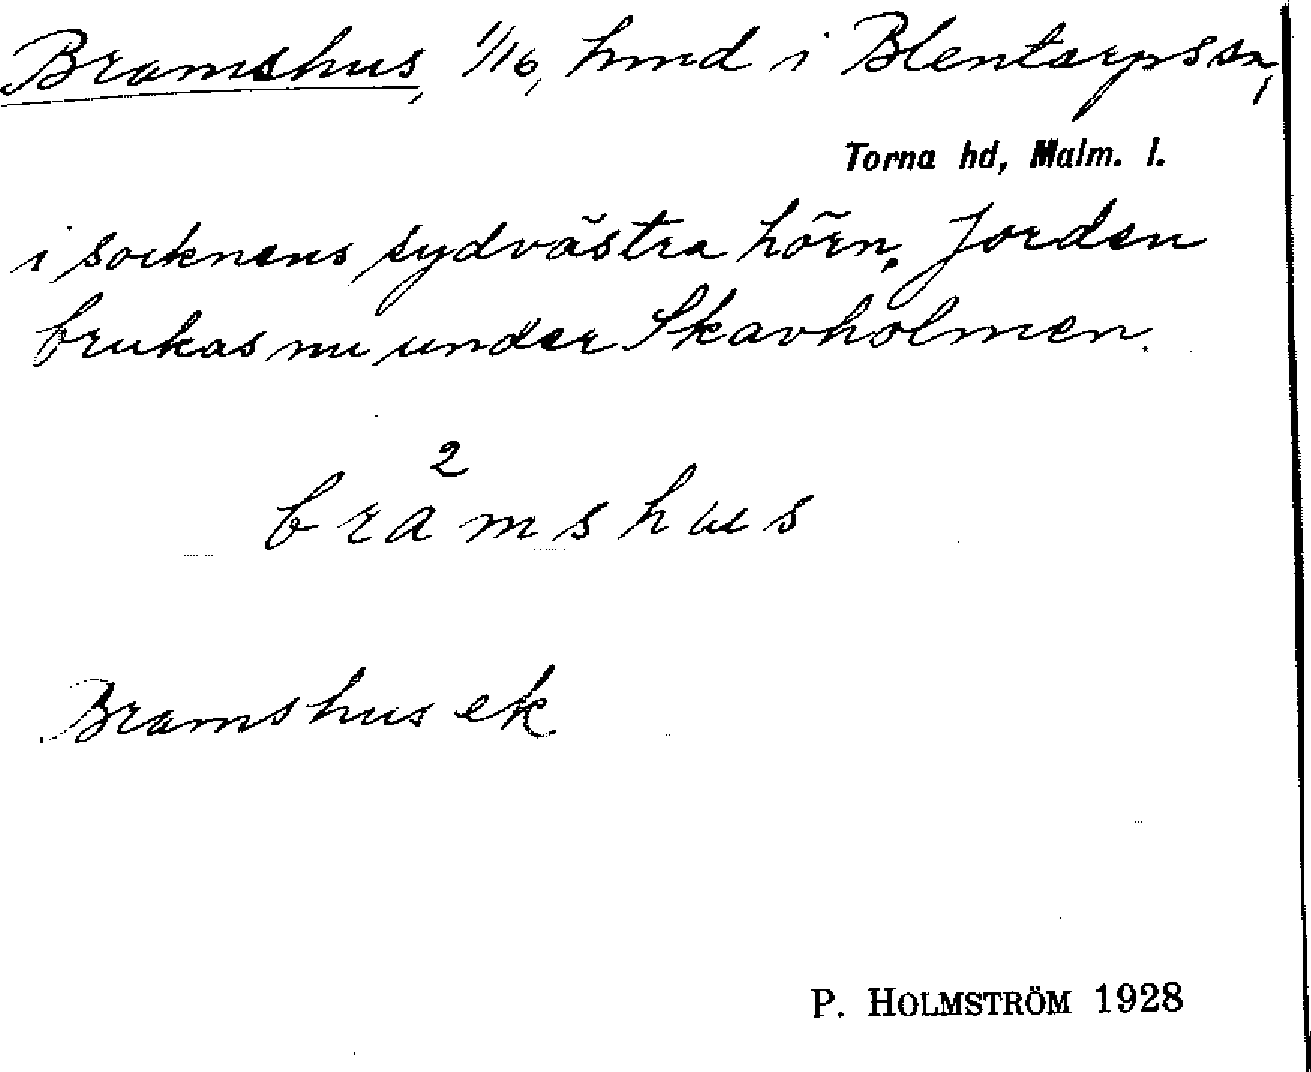 Bramshus, 1/16, hmd i Blentarps sn,
Torna hd, Malm. l.
i socknens sydvästra hörn. Jorden
brukas nu under Skavholmen.
2
bramshus
Bramshus ek
P. HOLMSTRÖM 1928